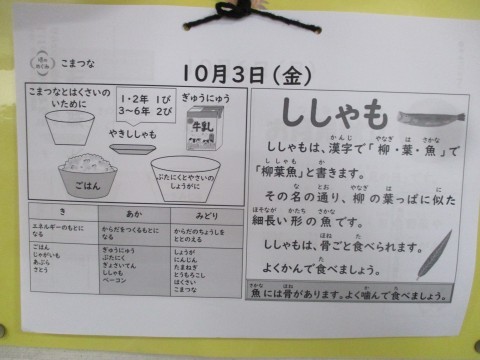 こまつな
10月3日（金）
こまつなとはくさいの
いために
1・2年 1ぴ
3～6年 2ひ
ぎゅうにゅう
牛乳
やきししゃも
ごはん
ぶたにくとやさいの
しょうがに
き
あか
みどり
エネルギーのもとに
なる
からだをつくるもとに
なる
からだのちょうしを
ととのえる
ごはん
じゃがいも
あぶら
さとう
ぎゅうにゅう
ぶたにく
ぎょさいてん
ししゃも
ベーコン
しょうが
にんじん
たまねぎ
とうもろこし
はくさい
こまつな
ししゃも
ししゃもは、漢字で「柳・葉・魚」で
「柳葉魚」と書きます。
その名の通り、柳の葉っぱに似た
細長い形の魚です。
ししゃもは、骨ごと食べられます。
よくかんで食べましょう。
魚には骨があります。よく噛んで食べましょう。